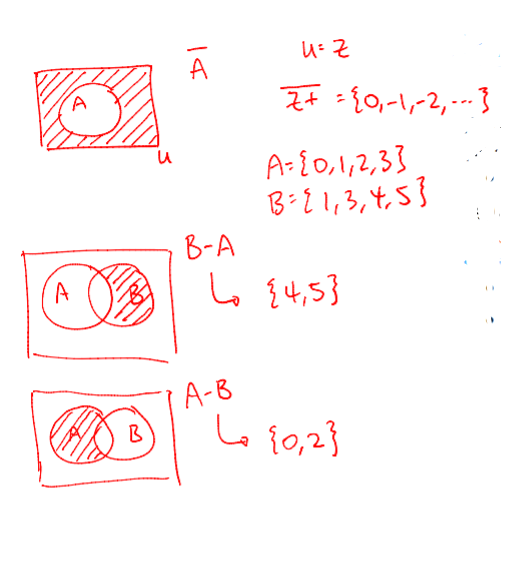 A̅
U = Z
A
U
Z̅+̅ = {0,-1,-2,...}
A={0,1,2,3}
B={1,3,4,5}
B-A
A B
↳ {4,5}
A-B
A B
↳ {0,2}